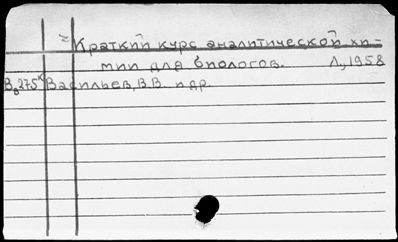 Краткий курс аналитической хи-
мии для биологов. Л, 1958
В 275 Васильев, В.В. и др.